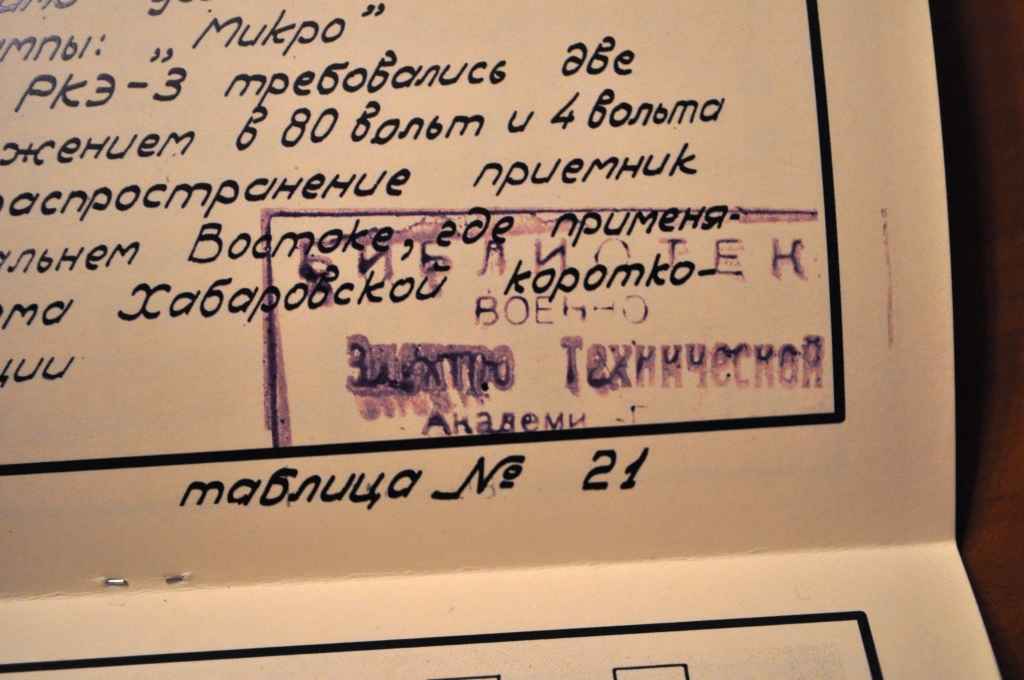 ампы: „Микро”
РКЭ-3 требовались две
жением в 80 вольт и 4 вольта
распространение приемник
альнем Востоке, где применя-
ома Хабаровской коротко-
ции
БИБЛИОТЕК
ВОЕННО
Электро Технической
Академи
таблица № 21